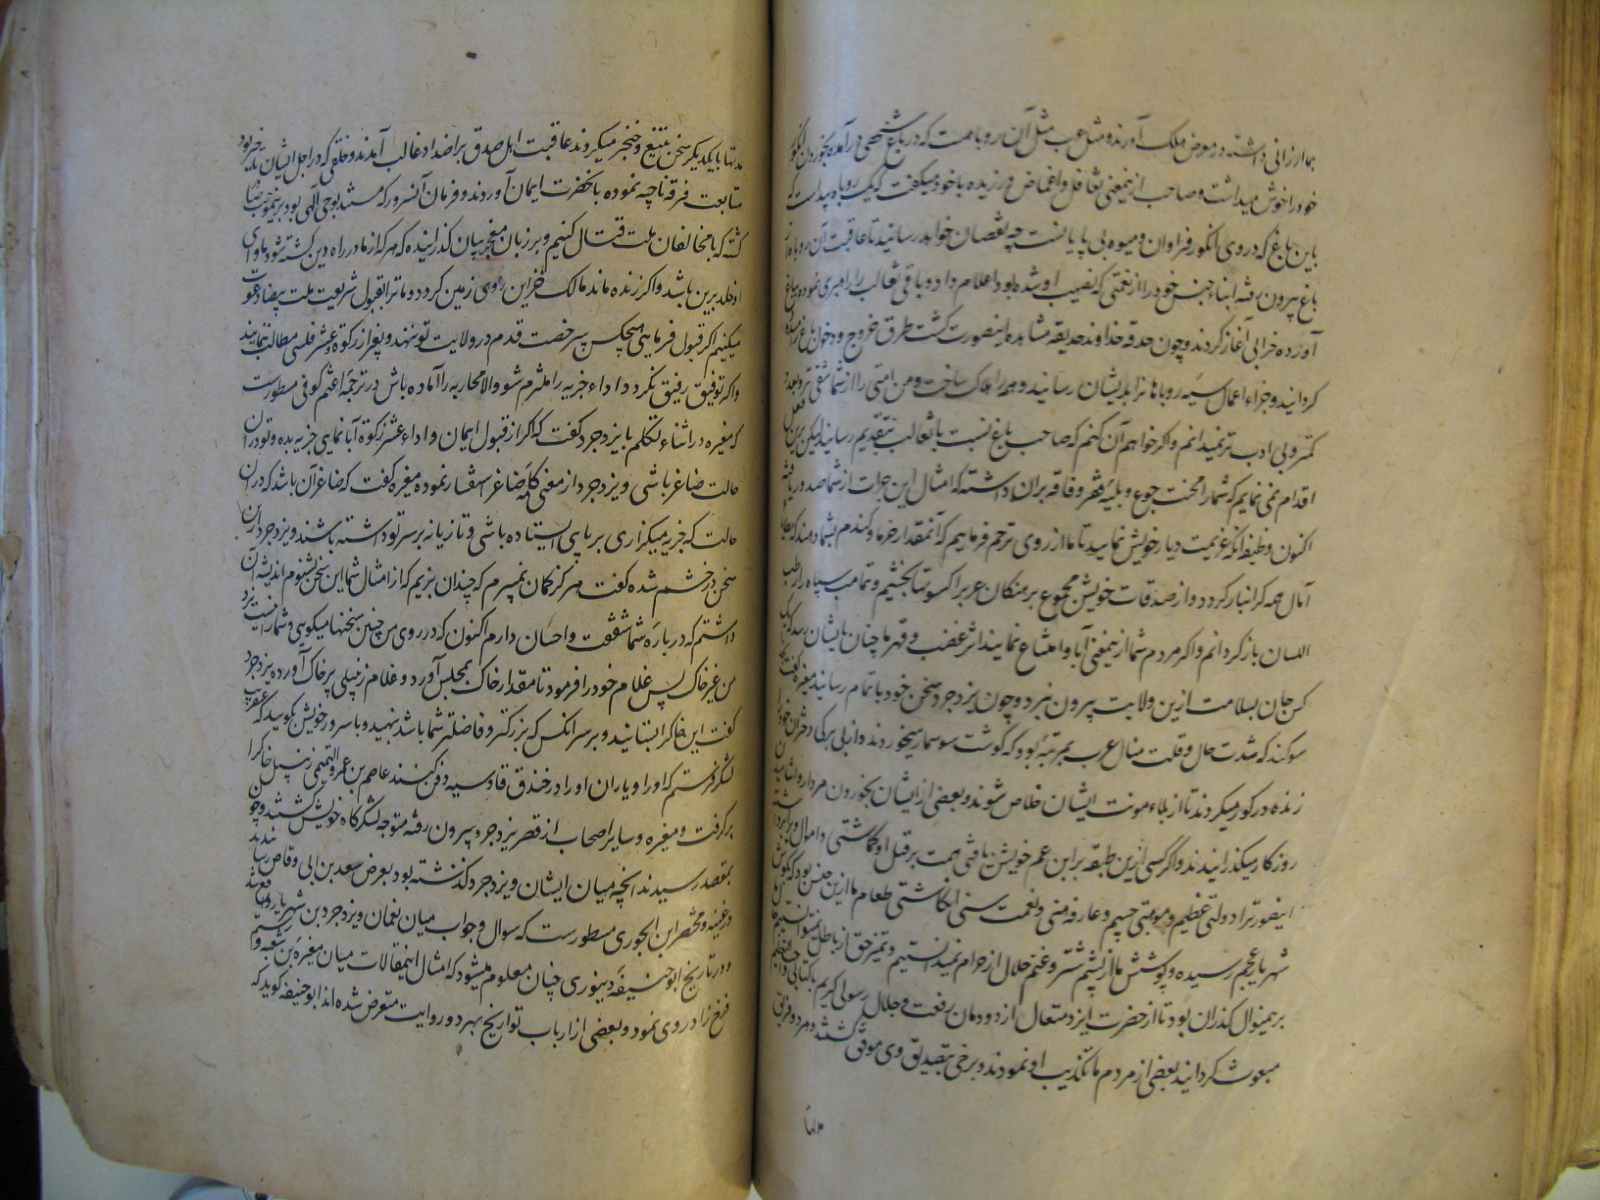 بما ارزانی داشته در معرض ملک آورند و مثل عرب مثل آن روباهست که در باغ شخصی درآمده بخوردن انگور
خود را خوش میداشت و صاحب از ینمعنی تغافل و اغماض ورزیده با خود میکفت که یک روباه پیداست که
باین باغ که در وی انکور فراوان و میوه بی پایانست چه نقصان خواهد رسانید تا عاقبت آن روباه از
باغ بیرون رفته ابناء جنس خود را از نعمتی که نصیب او شده بود اعلام داد و باقی ثعالب را رهبری نموده بباغ
آورده خرابی آغاز کردند و چون حدقه خداوند حدیقه مشاهده اینصورت کشت طرق خروج و دخول باغ
کردانید و جزاء اعمال سیئه روباهانرا بدیشان رسانید و همه را هلاک ساخت و من امتی را از شما شقی تر و
کمتر و بی ادب تر نمیدانم و اکر خواهم آن کنم که صاحب باغ نسبت با ثعالب بتقدیم رسانید لیکن برین فعل
اقدام نمی نمایم که شما را محنت جوع و بلیه فقر و فاقه بران داشته که امثال این جرات از شما صدور یافته
اکنون وظیفه انکه عزیمت دیار خویش نمایید تا ما از روی ترحم فرماییم که آنمقدار خرما و کندم بشما دهند که
آمال همه کرانبار کردد و از صدقات خویش مجموع برهنکان عرب را کسوتها بخشیم و
اللسان باز کردانم و اکر مردم شما از ینمعنی آبا و امتناع نمایند اثر غضب و قهر ما چنان بایشان رسد که یک
کس جان بسلامت ازین ولایت بیرون نبرد و چون یزدجرد سخن خود باتمام رسانید مغیره کفت
سوکند که شدت حال و قلت منال عرب بمرتبه بود که کوشت سوسمار میخوردند و از بی برکی دختران خود را
زنده در کور میکردند تا از بلاء مونت ایشان خلاص شوند و بعضی از ایشان بخوردن مردار
روزکار میکذرانیدند و اکر کسی ازین طبقه بر ابن عم خویش یافتی همت بر قتل او کماشتی و اموال
اینصورترا دولتی عظیم و موهبتی جسیم و عارفه منی و نعمت سنی انکاشتی طعام ما ازین جنس بود که
شهریار عجم رسیده و پوشش ما از پشم شتر و غنم حلال از حرام نمیدانستیم و تمیز حق از باطل
برهمینوال کذران بود تا از حضرت ایزد متعال از دودمان رفعت و جلال رسولی کریم با کتابی
مبعوث کردانید بعضی از مردم ما تکذیب او نمودند و برخی بتصدیق وی موفق کشتند و
مدتها
مدتها با یکدیکر سخن بتیغ و خنجر میکردند عاقبت اهل صدق بر اضداد غالب آمدند و خلقی که در اجل ایشان تاخیر بود
متابعت فرقه ناجیه نموده بانحضرت ایمان آوردند و فرمان آنسرور که مستند بوحی آلهی بود
کشته که با مخالفان ملت قتال کنیم و بر زبان معجز بیان کذرانیده که هر که از ما در راه دین کشته شود ماوای
او خلد برین باشد و اکر زنده ماند مالک خزاین روی زمین کردد و ما ترا بقبول شریعت ملت بیضا دعوت
میکنیم اکر قبول فرمایی هیچکس بی رخصت قدم در ولایت تو ننهد و بغیر از زکوة و عشر فلسی مطالب ننمایند
و اکر توفیق رفیق نکردد اداء جزیه را ملتزم شو و الا محاربه را آماده باش در ترجمه اعثم کوفی مسطورست
که مغیره در اثناء تکلم با یزدجرد کفت که اکر از قبول ایمان و اداء عشر زکوة آبا نمایی جزیه بده و تو در ان
حالت صاغر باشی و یزدجرد از معنی کلمه صاغر استفسار نموده مغیره کفت که صاغر آن باشد که در ان
حالت که جزیه میکزاری بر پای ایستاده باشی و تازیانه بر سر تو داشته باشند و یزدجرد از ان
سخن در خشم شده کفت هرکز کمان نمیبردم که چندان بزیم که از امثال شما این سخن بشنوم اندیشه آن
داشتم که درباره شما شفقت و احسان دارم اکنون که در روی من چنین سخنها میکویی و شما را نیست نزد
من غیر خاک پس غلام خود را فرمود تا مقدار خاک بمجلس آورد و غلام زنبیلی پر خاک آورده یزدجرد
کفت این خاکرا بستانید و بر سر انکس که بزرکتر و فاضلتر شما باشد بنهید و با سرور خویش بکویید که عنقریب
لشکر فرستم که او را و یاران او را در خندق قادسیه دفن کنند عاصم بن عمرو التمیمی زنبیل خاکرا
برکرفت و مغیره و سایر اصحاب از قصر یزدجرد بیرون رفته متوجه لشکرکاه خویش کشتند و چون
بمقصد رسیدند انچه میان ایشان و یزدجرد کذشته بود بعرض سعد بن ابی وقاص رسانیدند
در غنیه و مختصر ابن الجوزی مسطورست که سوال و جواب میان نعمان و یزدجرد بن شهریار واقع شد
و در تاریخ ابو حنیفه دینوری چنان معلوم میشود که امثال اینمقالات میان مغیرة بن شعبه و رستم
فرخ زاد روی نمود و بعضی از ارباب تواریخ بهر دو روایت متعرض شده اند ابو حنیفه کوید که